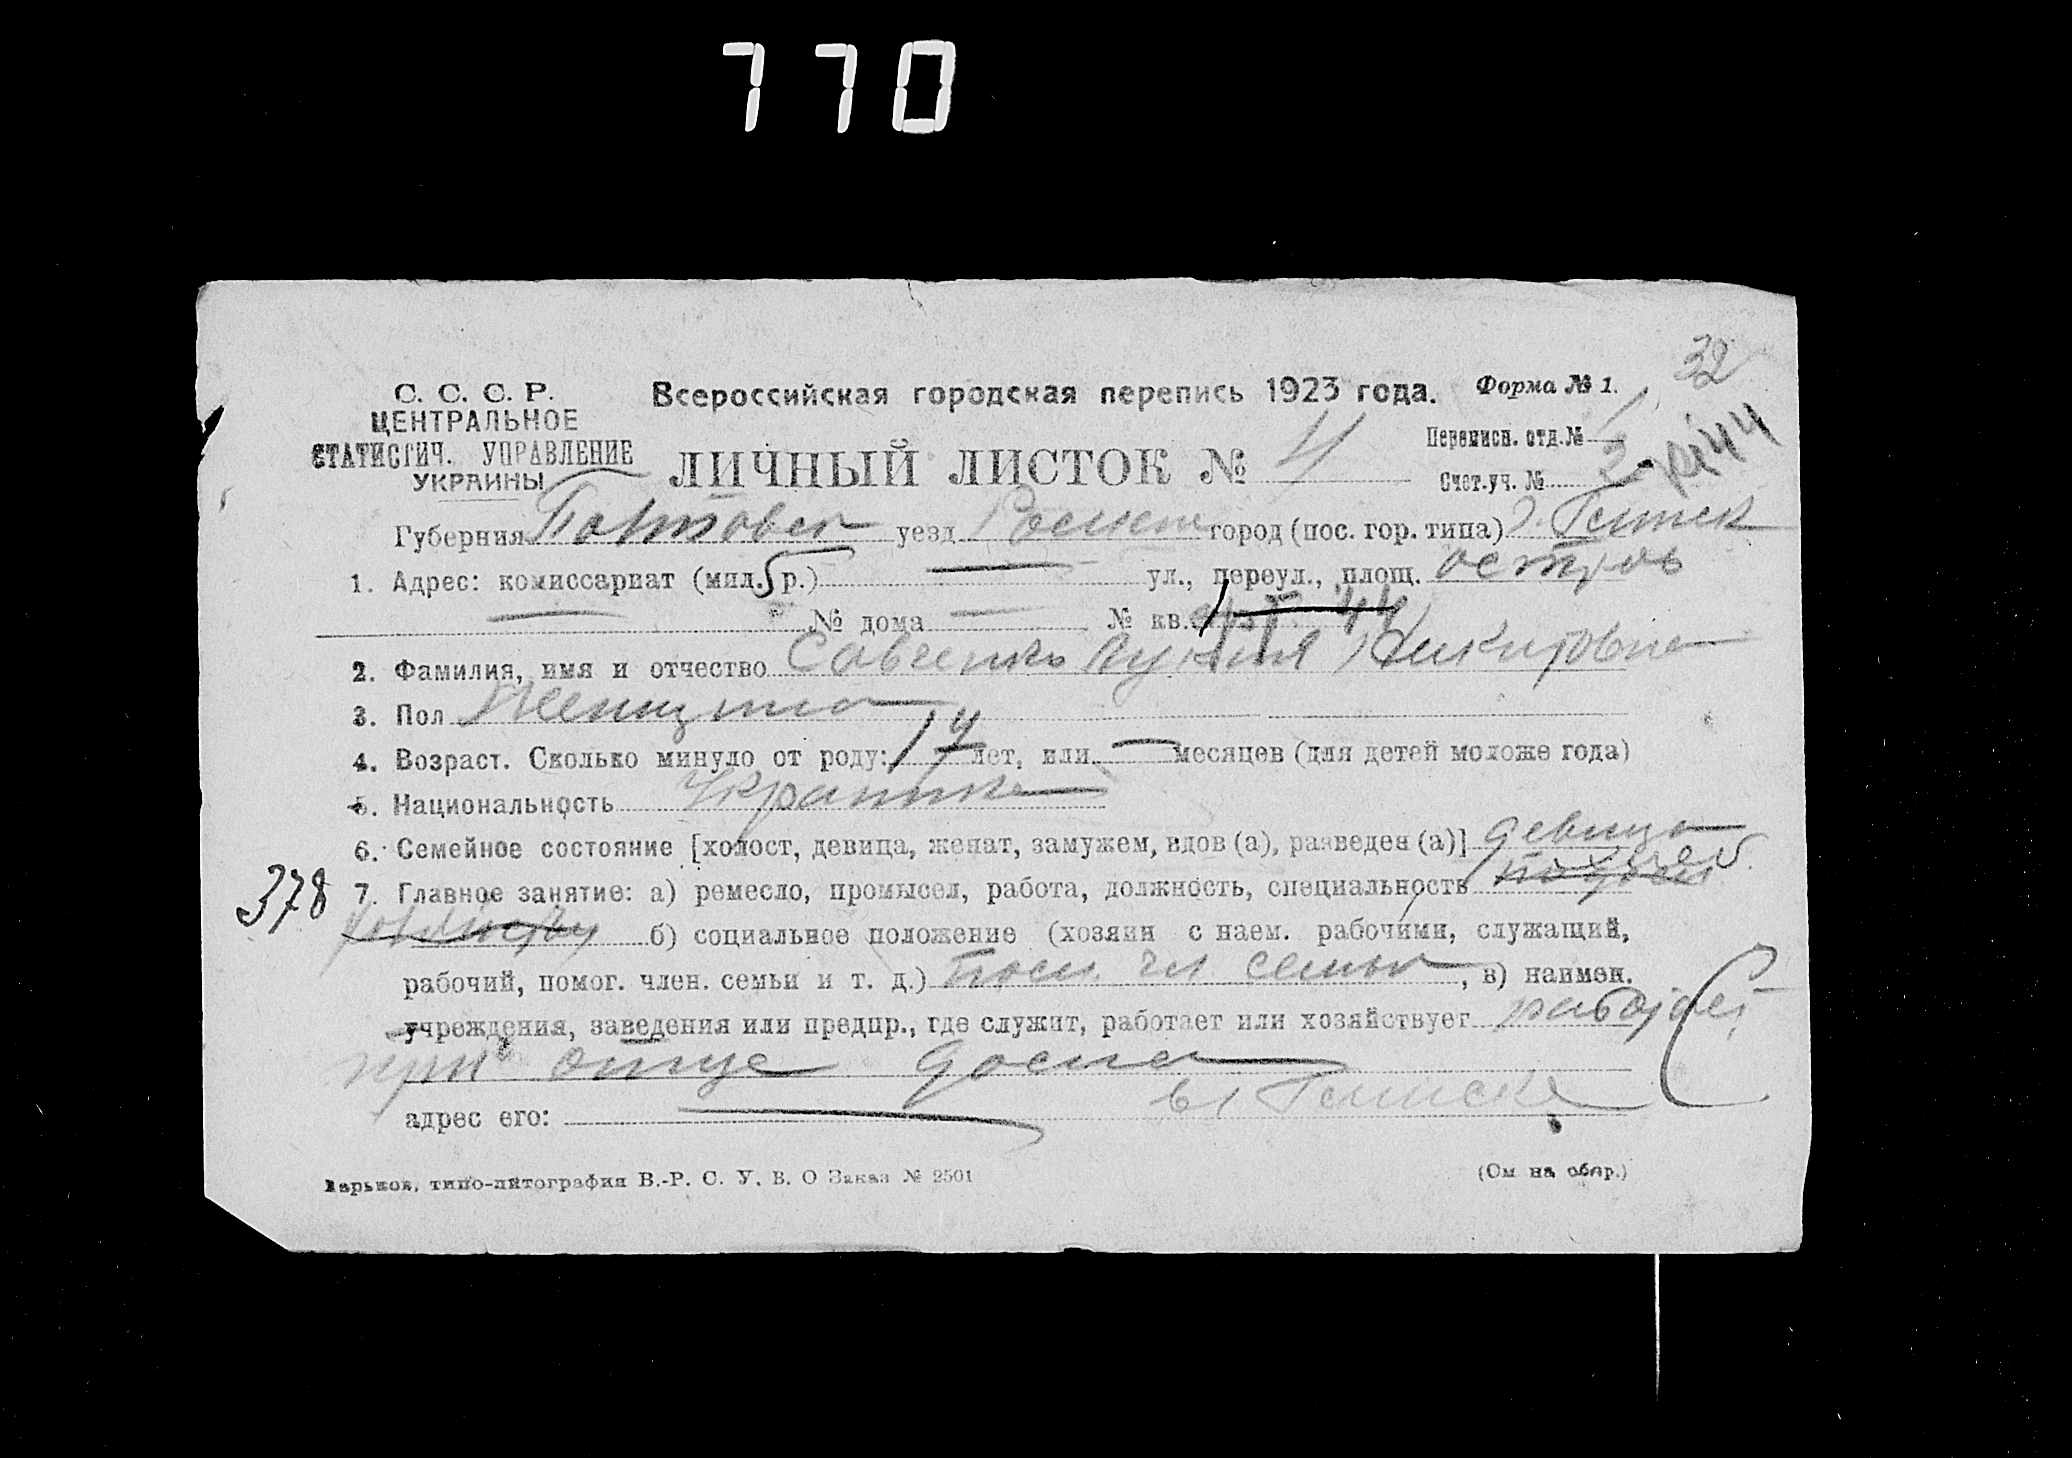 770
32
С. С. С. Р.
ЦЕНТРАЛЬНОЕ
СТАТИСТИЧ. УПРАВЛЕНИЕ
УКРАИНЫ
Всероссийская городская перепись 1923 года. Форма № 1.
ЛИЧНЫЙ ЛИСТОК № 4
Переписн. отд. №
Счет. уч. № 2
Губерния Полтовск уезд Роменс город (пос. гор. типа) г. Глинск
1. Адрес: комиссариат (мил. р.) ул., переул., площ. остров
№ дома — № кв. 44
2. Фамилия, имя и отчество Савченко Лукия Никитовна
3. Пол Женщина
4. Возраст. Сколько минуло от роду: 14 лет, или — месяцев (для детей моложе года)
5. Национальность Украинка
6. Семейное состояние [холост, девица, женат, замужем, вдов (а), разведен (а)] девица
378 7. Главное занятие: а) ремесло, промысел, работа, должность, специальность
б) социальное положение (хозяин с наем. рабочими, служащий,
рабочий, помог. член. семьи и т. д.) пом. чл. семьи, в) наимен.
учреждения, заведения или предпр., где служит, работает или хозяйствует работает
при отце дома
адрес его: в г Глинске
Харьков, типо-литография В.-Р. С. У. В. О Заказ № 2501
(См на обор.)